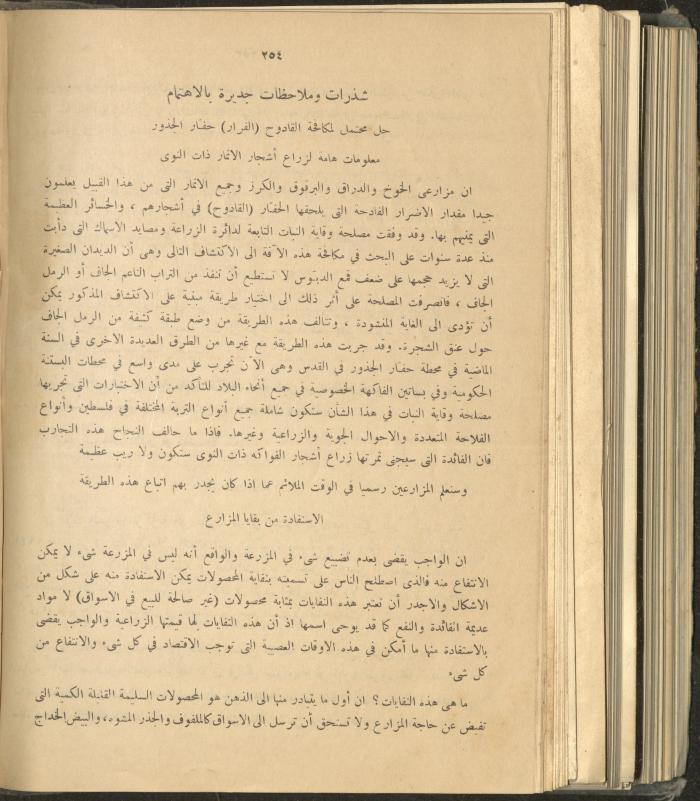 ٢٥٤
شذرات وملاحظات جديرة بالاهتمام
حل محتمل لمكافحة القادوح (الفرار) حفار الجذور
معلومات هامة لزراع أشجار الاثمار ذات النوى
ان مزارعى الخوخ والدراق والبرقوق والكرز وجميع الاثمار التى من هذا القبيل يعلمون
جيدا مقدار الاضرار الفادحة التى يلحقها الحفار (القادوح) في أشجارهم ، والخسائر العظيمة
التى يمنيهم بها. وقد وفقت مصلحة وقاية النبات التابعة لدائرة الزراعة ومصايد الاسماك التى دأبت
منذ عدة سنوات على البحث في مكافحة هذه الآفة الى الاكتشاف التالى وهى أن الديدان الصغيرة
التى لا يزيد حجمها على ضعف قمع الدبوس لا تستطيع أن تنفذ من التراب الناعم الجاف أو الرمل
الجاف ، فانصرفت المصلحة على أثر ذلك الى اختيار طريقة مبنية على الاكتشاف المذكور يمكن
أن تؤدى الى الغاية المنشودة ، وتتالف هذه الطريقة من وضع طبقة كثفة من الرمل الجاف
حول عنق الشجرة. وقد جربت هذه الطريقة مع غيرها من الطرق العديدة الاخرى في السنة
الماضية في محطة حفار الجذور في القدس وهى الآن تجرب على مدى واسع في محطات البستنة
الحكومية وفي بساتين الفاكهة الخصوصية في جميع أنحاء البلاد للتأكد من أن الاختبارات التى تجريها
مصلحة وقاية النبات في هذا الشأن ستكون شاملة جميع أنواع التربة المختلفة في فلسطين وأنواع
الفلاحة المتعددة والاحوال الجوية والزراعية وغيرها. فاذا ما حالف النجاح هذه التجارب
فان الفائدة التى سيجنى ثمرتها زراع أشجار الفواكه ذات النوى ستكون ولا ريب عظيمة
وسنعلم المزارعين رسميا في الوقت الملائم عما اذا كان يجدر بهم اتباع هذه الطريقة
الاستفادة من بقايا المزارع
ان الواجب يقضى بعدم تضييع شىء في المزرعة والواقع أنه ليس في المزرعة شىء لا يمكن
الانتفاع منه فالذى اصطلح الناس على تسميته بنفاية المحصولات يمكن الاستفادة منه على شكل من
الاشكال والاجدر أن تعتبر هذه النفايات بمثابة محصولات (غير صالحة للبيع في الاسواق) لا مواد
عديمة الفائدة والنفع كما قد يوحى اسمها اذ أن هذه النفايات لها قيمتها الزراعية والواجب يقضى
بالاستفادة منها ما أمكن في هذه الاوقات العصيبة التى توجب الاقتصاد في كل شىء والانتفاع من
كل شىء
ما هى هذه النفايات؟ ان أول ما يتبادر منها الى الذهن هو المحصولات السليمة القليلة الكمية التى
تفيض عن حاجة المزارع ولا تستحق أن ترسل الى الاسواق كالملفوف والجذر المشوه، والبيض الخداج